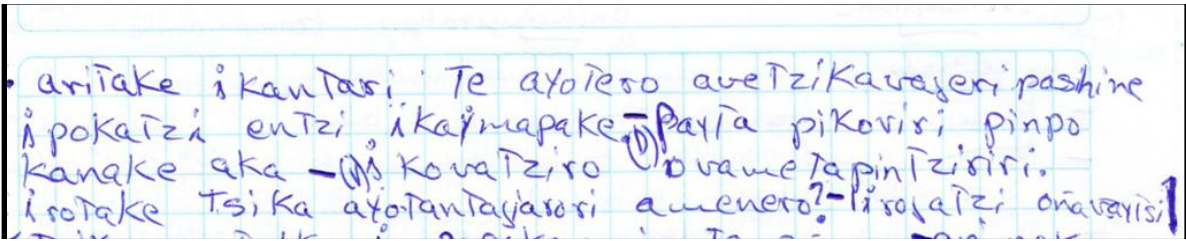 . aritake ikantari. Te ayotero avetzikavageri pashine
ipokatzi entzi, ikaymapake - Payta pikoviri pinpo
kanake aka - (I) ikovatziro (I) ovametapintziriri.
irotake tsika ayotantayarori amenero? - irosatzi oñavayisi